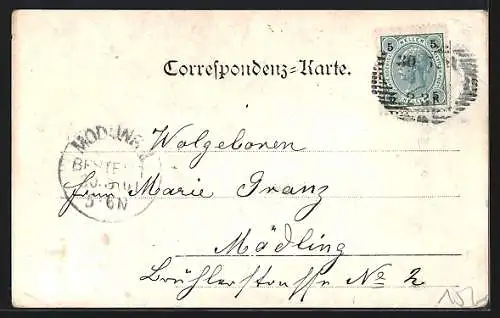 5 HELLER 5
Correspondenz-Karte.
MÖDLING
BESTELLT
5-6N
Wolgeboren
Frau Marie Granz
Mödling
Brühlerstrasse No 2
152